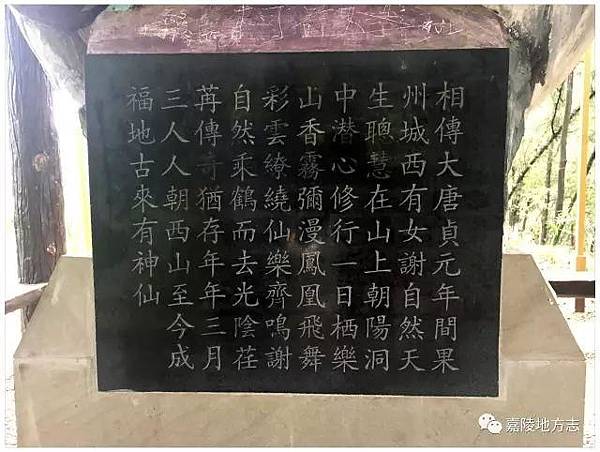 相傳大唐貞元年間果
州城西有女謝自然天
生聰慧在山上朝陽洞
中潜心修行一日栖樂
山香霧彌漫鳳凰飛舞
彩雲繚繞仙樂齊鳴謝
自然乘鶴而去光陰荏
苒傳奇猶存年年三月
三人人朝西山至今成
福地古來有神仙
嘉陵地方志